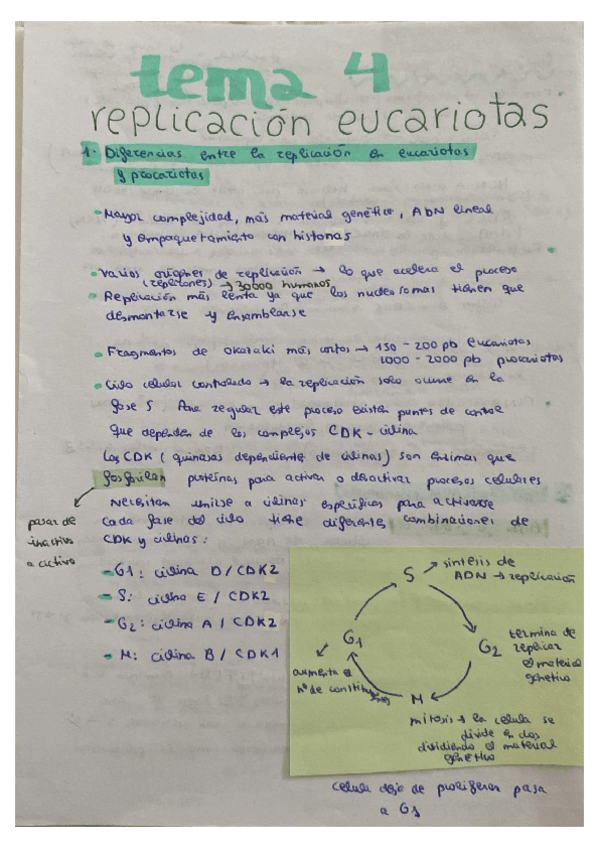 tema 4
replicación eucariotas
1. Diferencias entre la replicación en eucariotas
y procariotas
• Mayor complejidad, más material genético, ADN lineal
y empaquetamiento con histonas
• varios orígenes de replicación → lo que acelera el proceso
(replicones) → 30000 humanos
• Replicación más lenta ya que los nucleosomas tienen que
desmontarse y ensamblarse
• Fragmentos de okazaki más cortos → 150 - 200 pb eucariotas
1000 - 2000 pb procariotas
• Ciclo celular controlado → la replicación solo ocurre en la
fase S. Para regular este proceso existen puntos de control
que dependen de los complejos CDK - ciclina
Las CDK (quinasas dependiente de ciclinas) son enzimas que
fosforilan proteínas para activar o desactivar procesos celulares
Necesitan unirse a ciclinas específicas para activarse
cada fase del ciclo tiene diferentes combinaciones de
CDK y ciclinas:
pasar de
inactivo
a activo
- G1: ciclina D / CDK2
- S: ciclina E / CDK2
- G2: ciclina A / CDK2
- M: ciclina B / CDK1
S → síntesis de
ADN → replicación
G2 termina de
replicar
el material
genético
G1
aumenta el
nº de
M
mitosis → la célula se
divide en dos
dividiendo el material
genético
celula deja de proliferar pasa
a